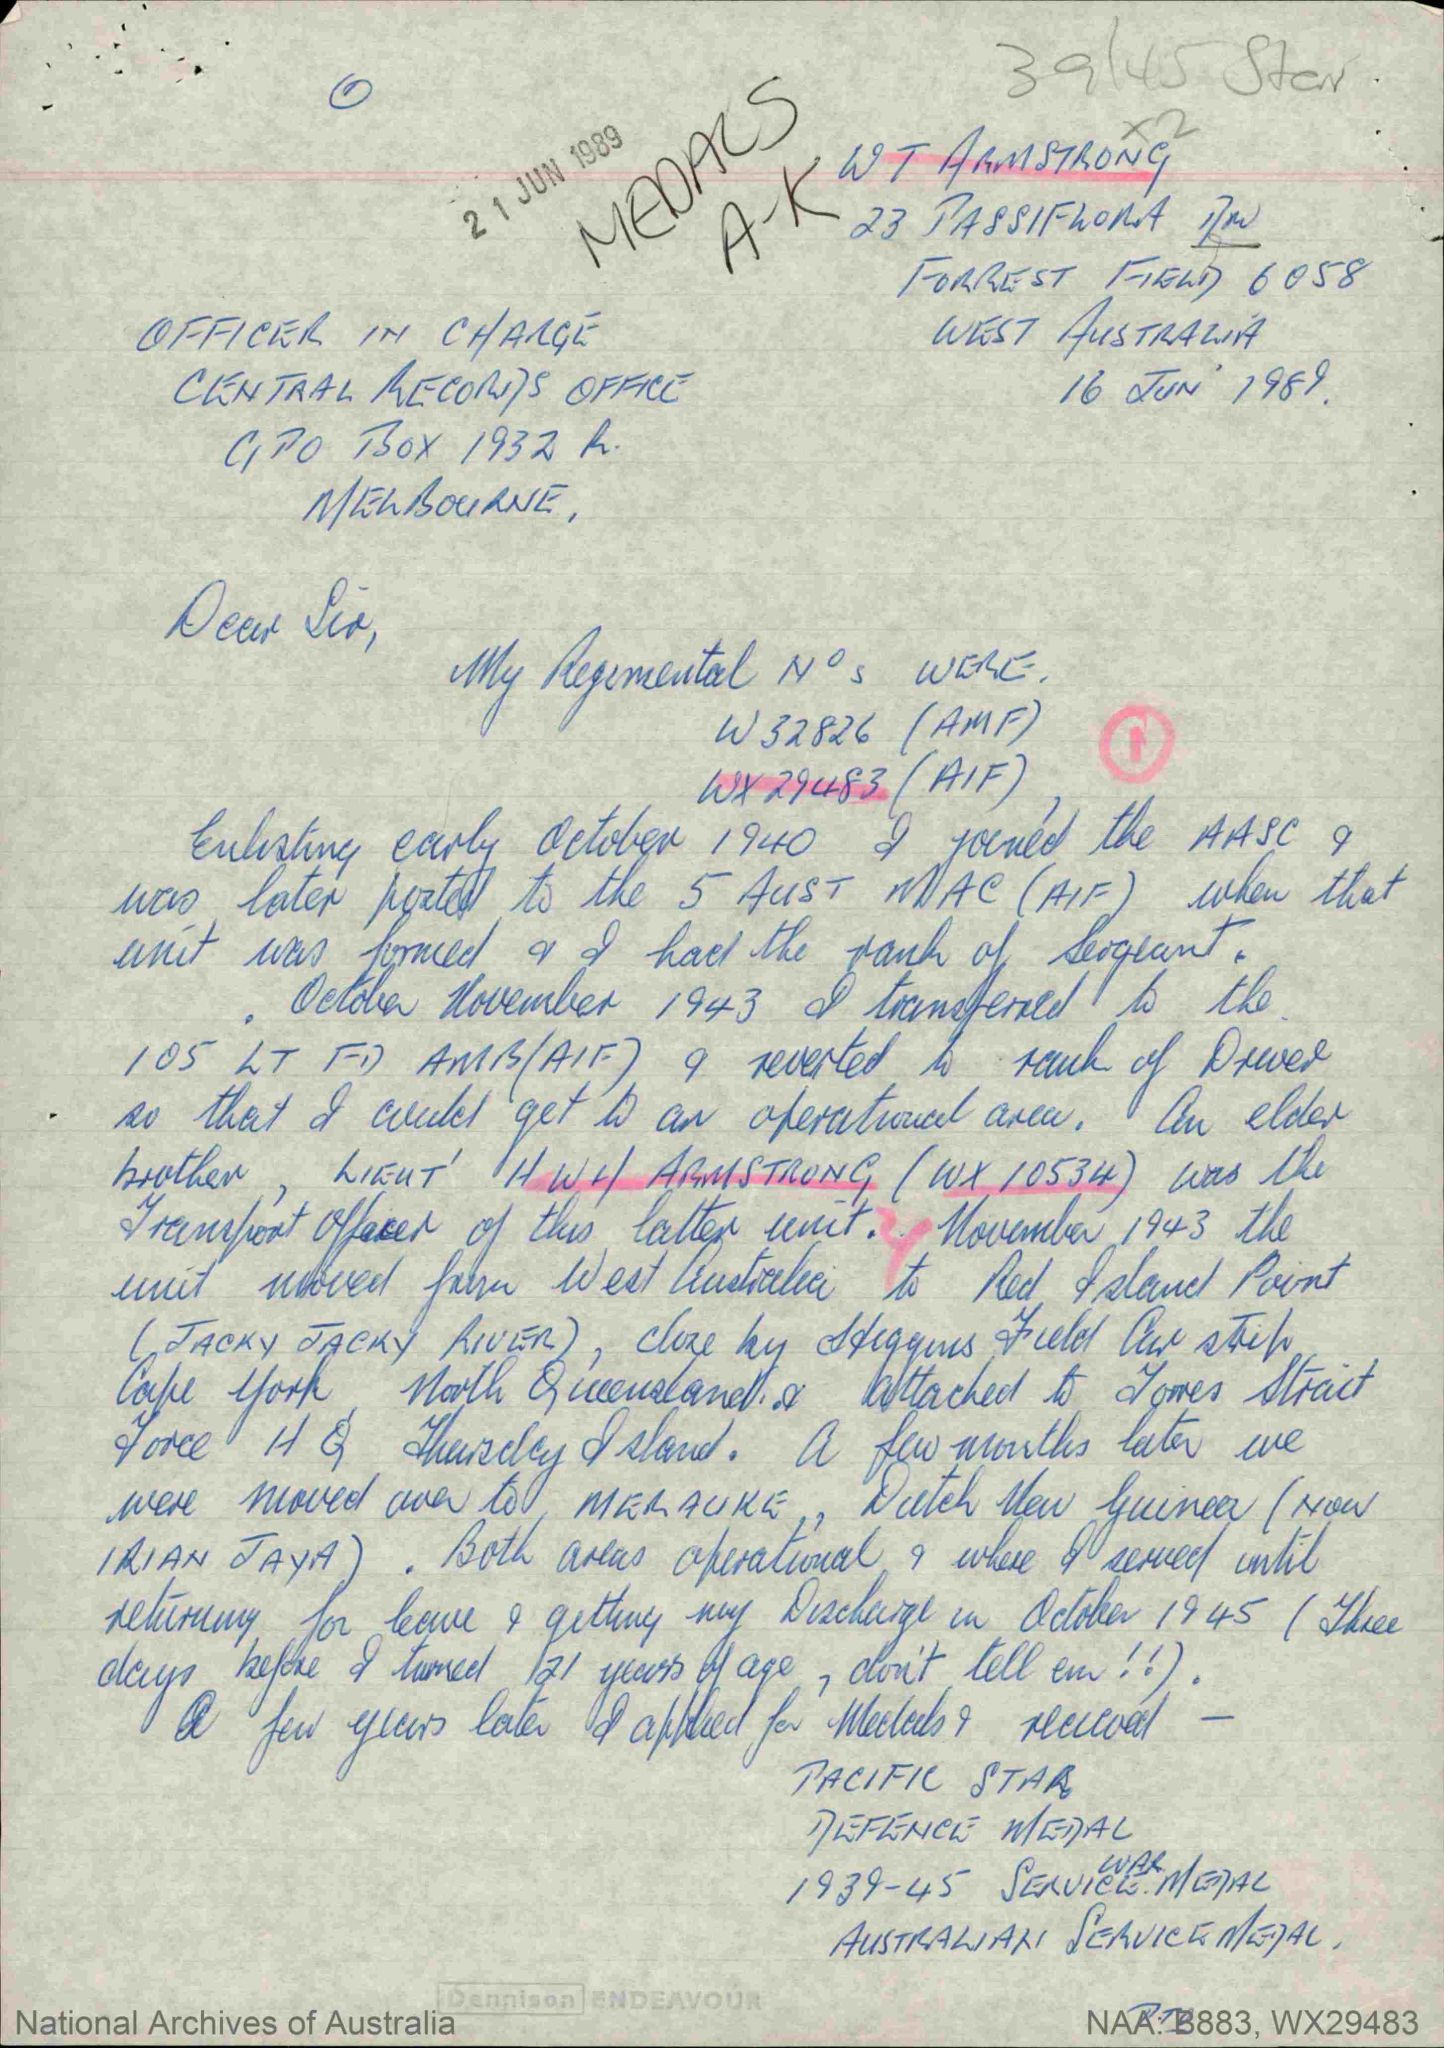 39/45 Star
x2
21 JUN 1989
MEDALS
A-K
WT ARMSTRONG
23 PASSIFLORA
FORREST FIELD 6058
WEST AUSTRALIA
16 JUN' 1989.
OFFICER IN CHARGE
CENTRAL RECORDS OFFICE
GPO BOX 1932 R.
MELBOURNE,
Dear Sir,
My Regimental Nos WERE.
W32826 (AMF)
WX29483 (AIF),
1
Enlisting early October 1940 I joined the AASC &
was later posted to the 5 AUST MAC (AIF) when that
unit was formed & I had the rank of Sergeant.
October November 1943 I transferred to the
105 LT FD AMB (AIF) & reverted to rank of Driver
so that I could get to an operational area. An elder
brother, LIEUT' HWH ARMSTRONG (WX 10534) was the
Transport Officer of this latter unit. November 1943 the
unit moved from West Australia to Red Island Point
(JACKY JACKY RIVER), close by Higgins Field Air strip
Cape York, North Queensland. & attached to Torres Strait
Force HQ Thursday Island. A few months later we
were moved over to MERAUKE, Dutch New Guinea (NOW
IRIAN JAYA). Both areas operational & where I served until
returning for leave & getting my Discharge in October 1945 (Three
days before I turned 21 years of age, don't tell em!!).
A few years later I applied for Medals & received —
PACIFIC STAR
DEFENCE MEDAL
WAR
1939-45 SERVICE MEDAL
AUSTRALIAN SERVICE MEDAL.
Dennison ENDEAVOUR
National Archives of Australia
NAA: B883, WX29483